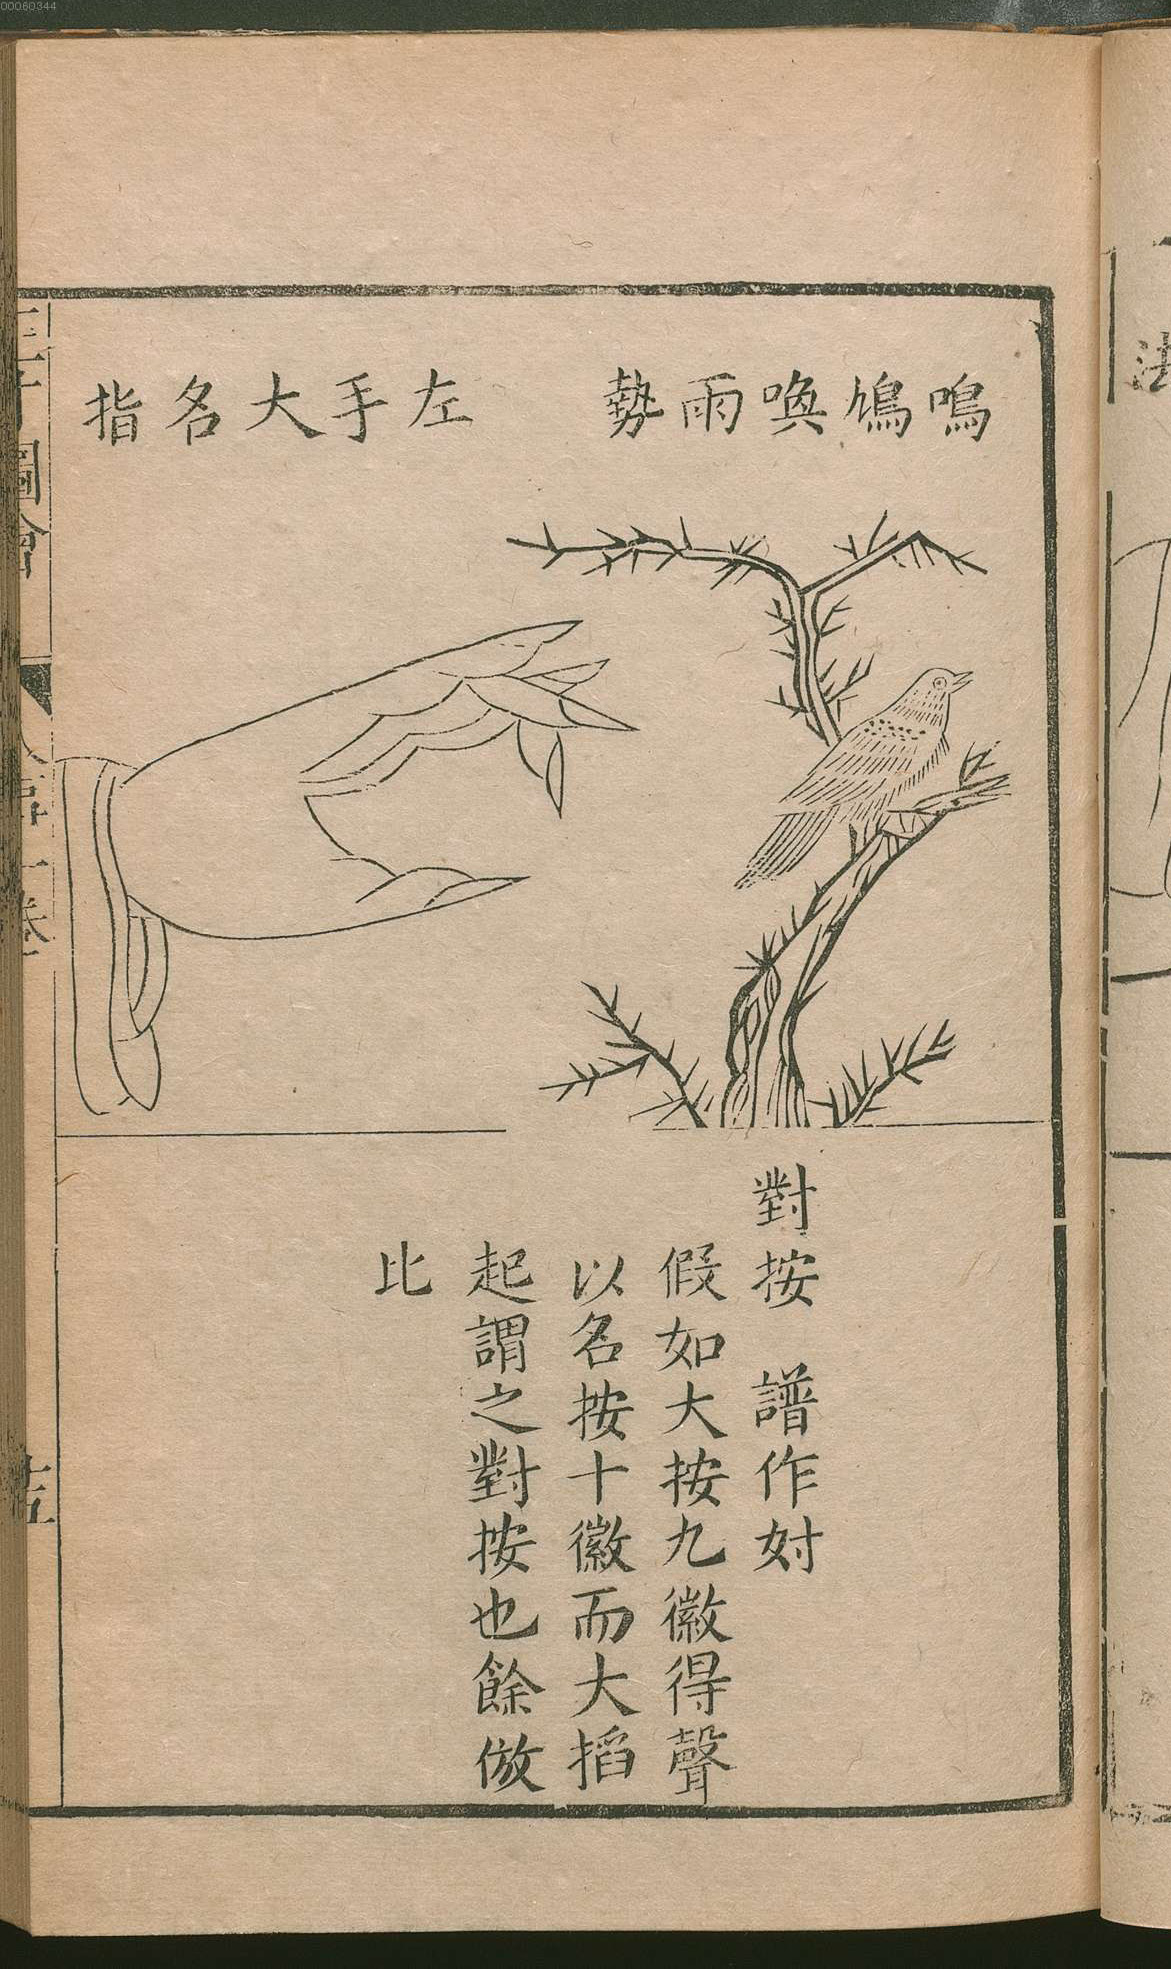 00060344
鳴鳩喚雨勢
左手大名指
對按　譜作㚥
假如大按九徽得聲
以名按十徽而大搯
起謂之對按也餘倣
比
三才圖會
人事一卷